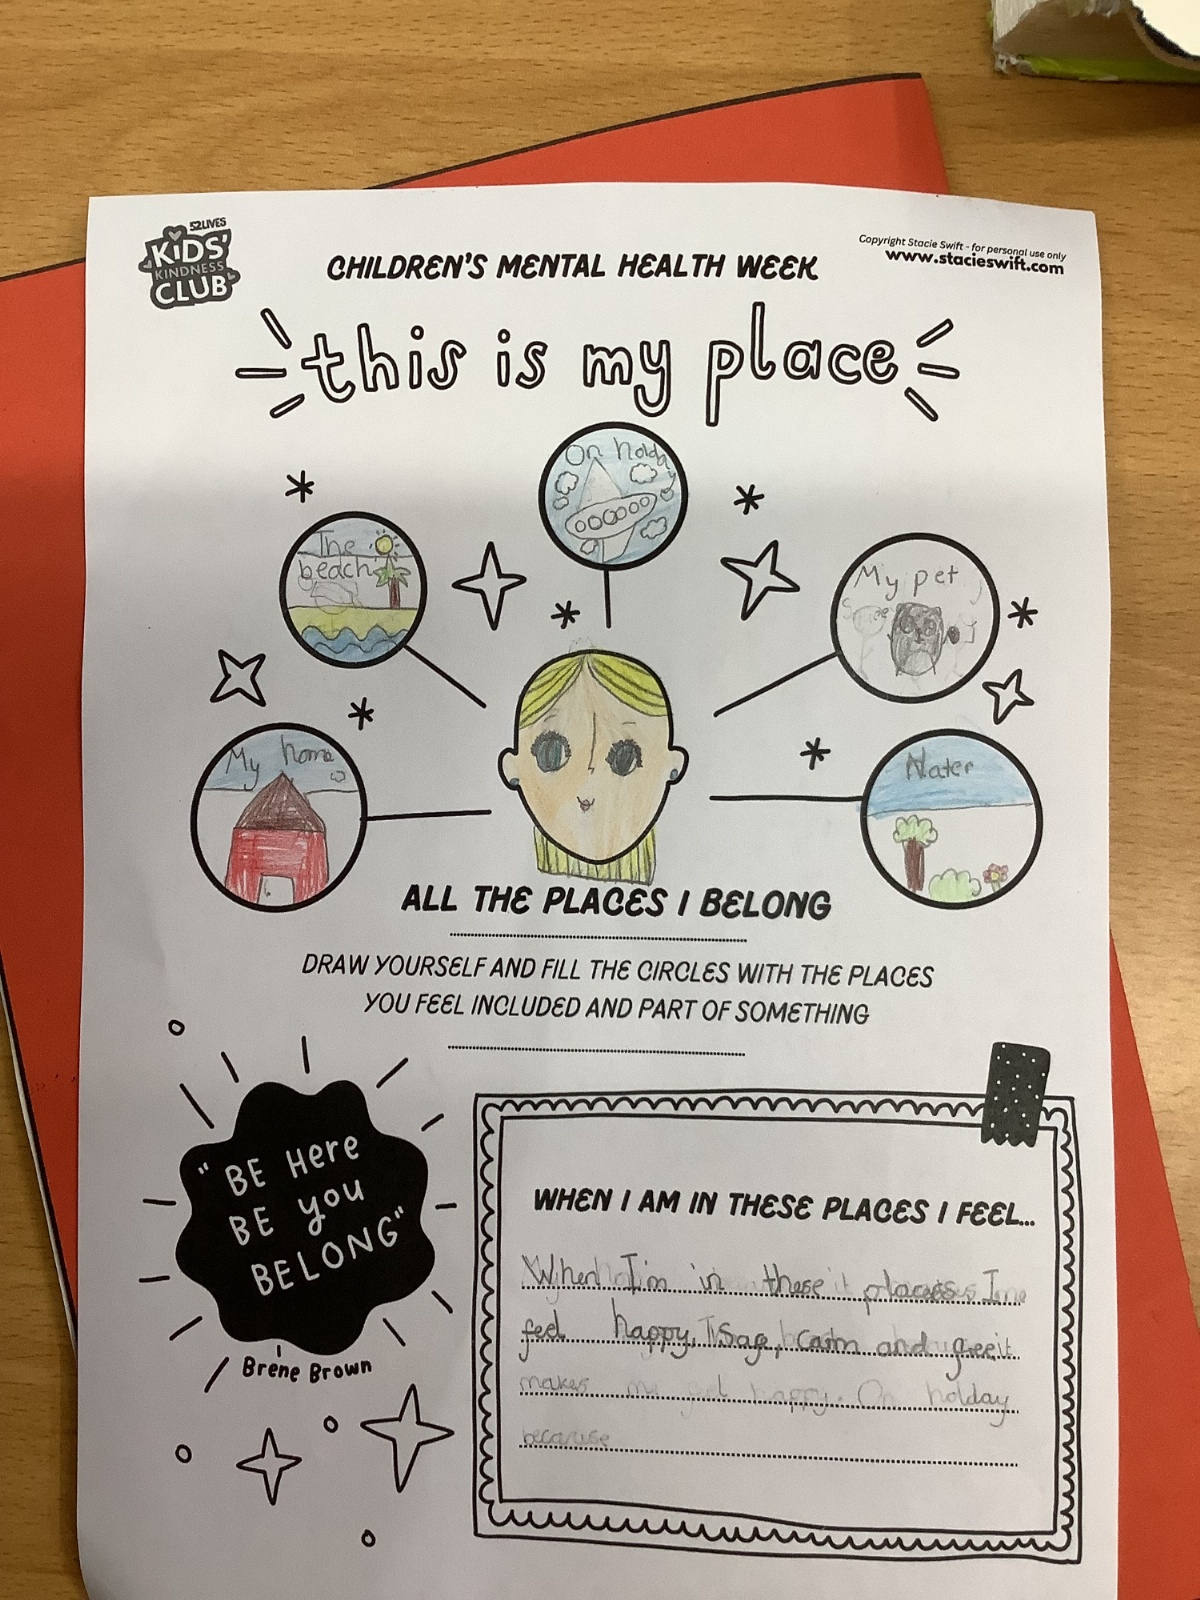 52 LIVES
KiDS'
KINDNESS
CLUB
CHILDREN'S MENTAL HEALTH WEEK
Copyright Stacie Swift - for personal use only
www.stacieswift.com
this is my place
On holday
The
beach
My pet
My home
Nater
ALL THE PLACES I BELONG
DRAW YOURSELF AND FILL THE CIRCLES WITH THE PLACES
YOU FEEL INCLUDED AND PART OF SOMETHING
"BE Here
BE you
BELONG"
Brene Brown
WHEN I AM IN THESE PLACES I FEEL...
When I'm in these places I
feel happy, Sage, calm and
makes me feel happy. On holday
because